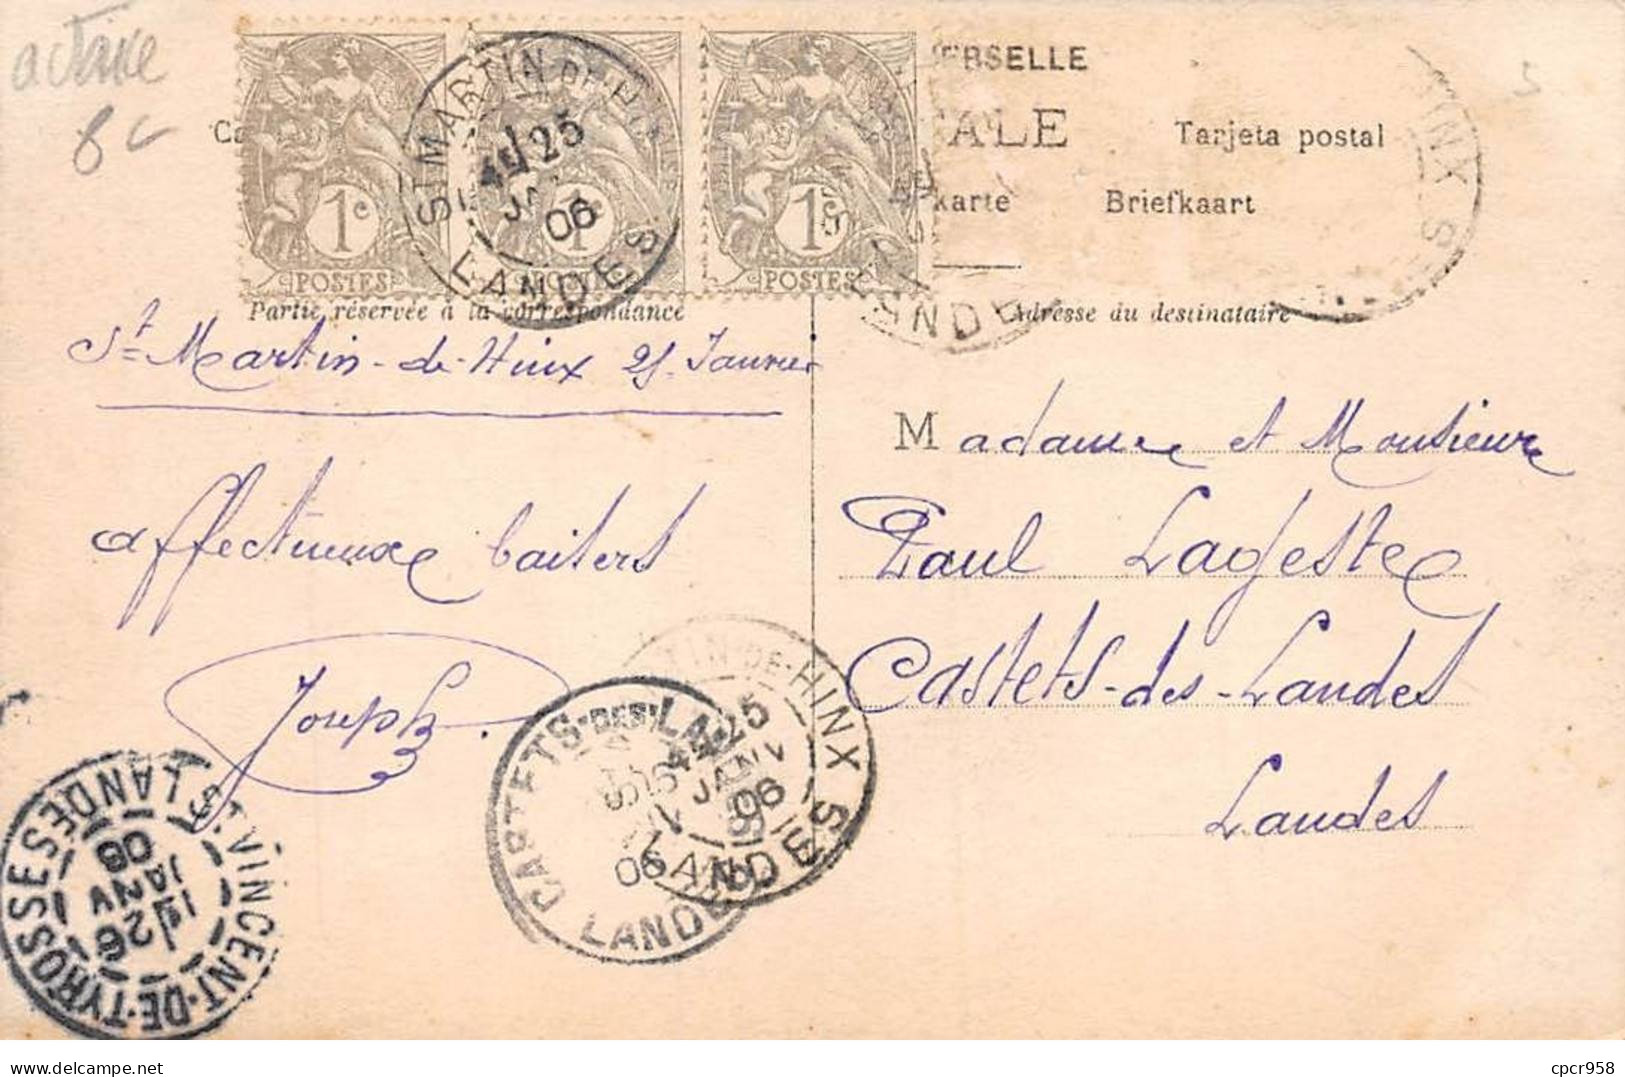 a Taxe
6 c
1c
1c
1c
POSTES
POSTES
POSTES
ST MARTIN-DE-HINX
1E 25
06
LANDES
ERSELLE
ALE
Tarjeta postal
karte Briefkaart
INX
Partie réservée à la correspondance
Adresse du destinataire
St Martin-de-Hinx 25 Janvier
Madame et Monsieur
affectueux baisers
Paul Lageste
Joseph
Castets-des-Landes
Landes
CASTETS-DES-LANDES
LANDES
06
TIN-DE-HINX
25
JANV
06
LANDES
ST VINCENT-DE-TYROSSE
1E 26
JANV
06
LANDES
delcampe.net
cpcr958